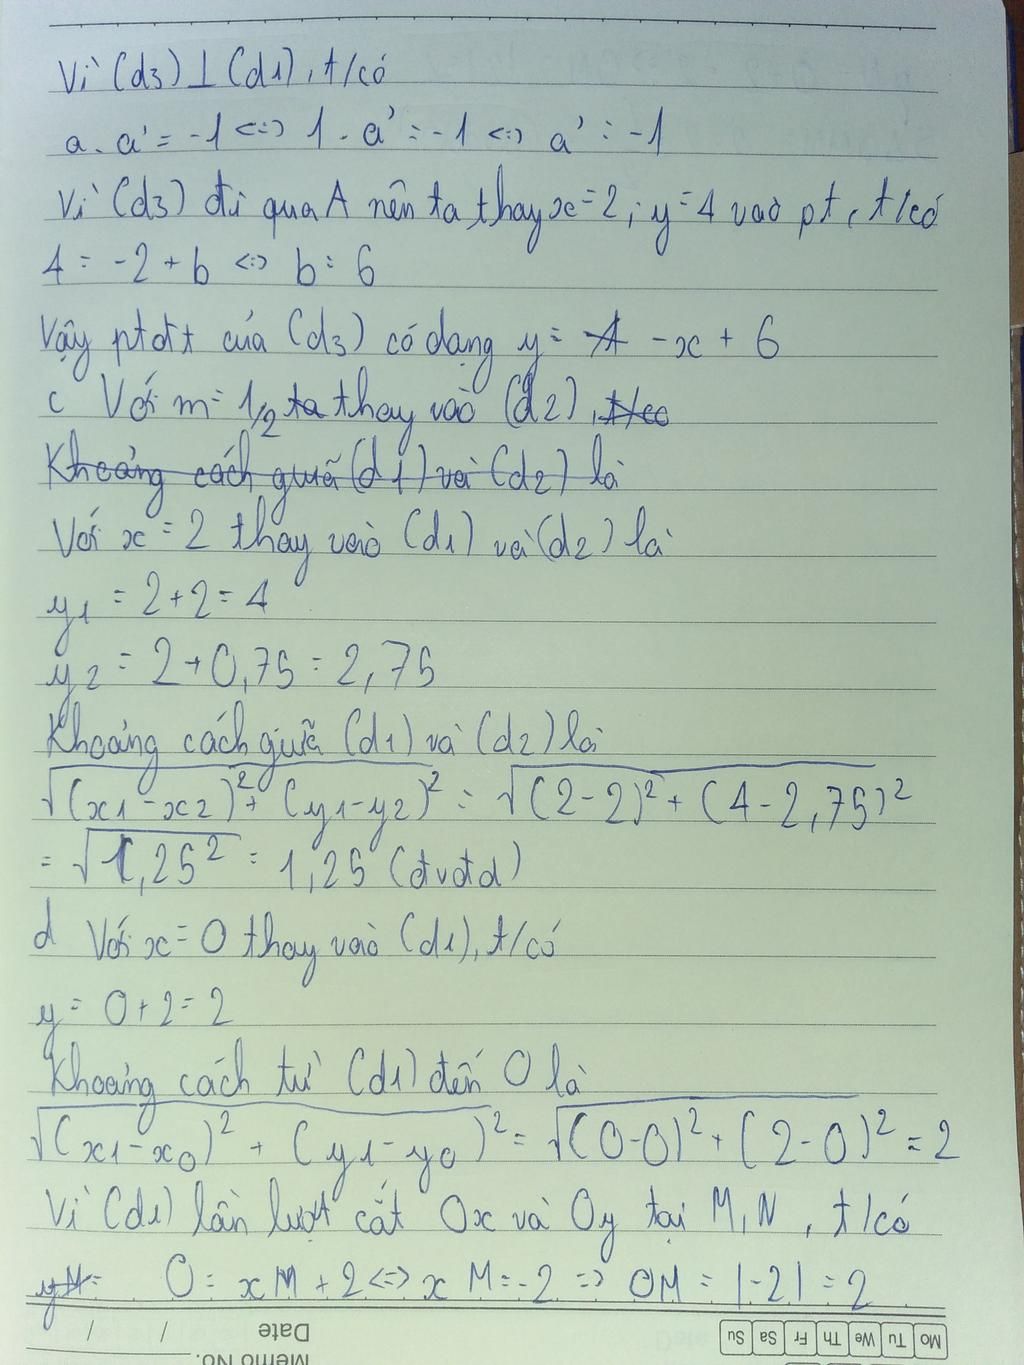 Vì (d3) ⊥ (d1), t/có
a. a' = -1 <=> 1 . a' = -1 <=> a' = -1
Vì (d3) đi qua A nên ta thay x = 2 ; y = 4 vào pt, t/có
4 = -2 + b <=> b = 6
Vậy ptđt của (d3) có dạng y = -x + 6
c Với m = 1/2 ta thay vào (d2), t/có
Khoảng cách giữa (d1) và (d2) là
Với x = 2 thay vào (d1) và (d2) là
y1 = 2 + 2 = 4
y2 = 2 + 0,75 = 2,75
Khoảng cách giữa (d1) và (d2) là
√(x1 - x2)² + (y1 - y2)² = √(2 - 2)² + (4 - 2,75)²
= √1,25² = 1,25 (đvđd)
d Với x = 0 thay vào (d1), t/có
y = 0 + 2 = 2
Khoảng cách từ (d1) đến O là
√(x1 - x0)² + (y1 - y0)² = √(0 - 0)² + (2 - 0)² = 2
Vì (d1) lần lượt cắt Ox và Oy tại M, N , t/có
yM = 0 = xM + 2 <=> xM = -2 => OM = |-2| = 2
Mo Tu We Th Fr Sa Su
Date / /
Memo No.